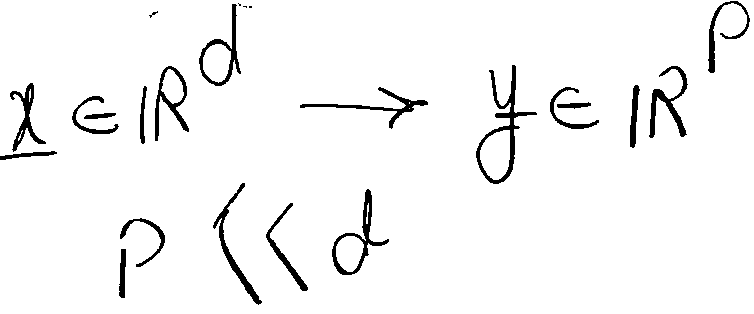 x ∈ ℝ^d → y ∈ ℝ^P
P << d